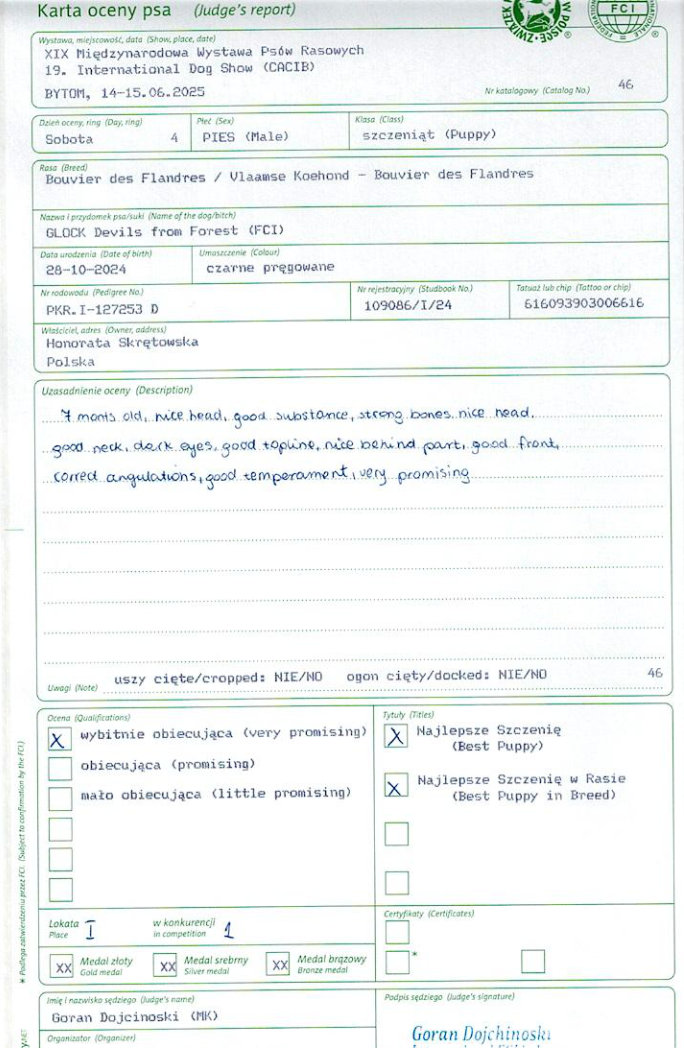 Karta oceny psa (Judge's report)
W POLSCE
ZWIĄZEK
FCI
Wystawa, miejscowość, data (Show, place, date)
XIX Międzynarodowa Wystawa Psów Rasowych
19. International Dog Show (CACIB)
BYTOM, 14-15.06.2025
Nr katalogowy (Catalog No.) 46
Dzień oceny, ring (Day, ring) Płeć (Sex) Klasa (Class)
Sobota 4 PIES (Male) szczeniąt (Puppy)
Rasa (Breed)
Bouvier des Flandres / Vlaamse Koehond - Bouvier des Flandres
Nazwa i przydomek psa/suki (Name of the dog/bitch)
GLOCK Devils from Forest (FCI)
Data urodzenia (Date of birth) Umaszczenie (Colour)
28-10-2024 czarne pręgowane
Nr rodowodu (Pedigree No.) Nr rejestracyjny (Studbook No.) Tatuaż lub chip (Tattoo or chip)
PKR.I-127253 D 109086/I/24 616093903006616
Właściciel, adres (Owner, address)
Honorata Skrętowska
Polska
Uzasadnienie oceny (Description)
7 monts old, nice head, good substance, strong bones nice head,
good neck, dark eyes, good topline, nice behind part, good front,
correct angulations, good temperament, very promising
uszy cięte/cropped: NIE/NO ogon cięty/docked: NIE/NO 46
Uwagi (Note)
Ocena (Qualifications) Tytuły (Titles)
X wybitnie obiecująca (very promising) X Najlepsze Szczenię
(Best Puppy)
obiecująca (promising)
X Najlepsze Szczenię w Rasie
mało obiecująca (little promising) (Best Puppy in Breed)
Lokata I w konkurencji 1
Place in competition
Certyfikaty (Certificates)
*
xx Medal złoty xx Medal srebrny xx Medal brązowy
Gold medal Silver medal Bronze medal
* Podlega zatwierdzeniu przez FCI. (Subject to confirmation by the FCI.)
Imię i nazwisko sędziego (Judge's name) Podpis sędziego (Judge's signature)
Goran Dojcinoski (MK)
Goran Dojchinoski
Organizator (Organizer)